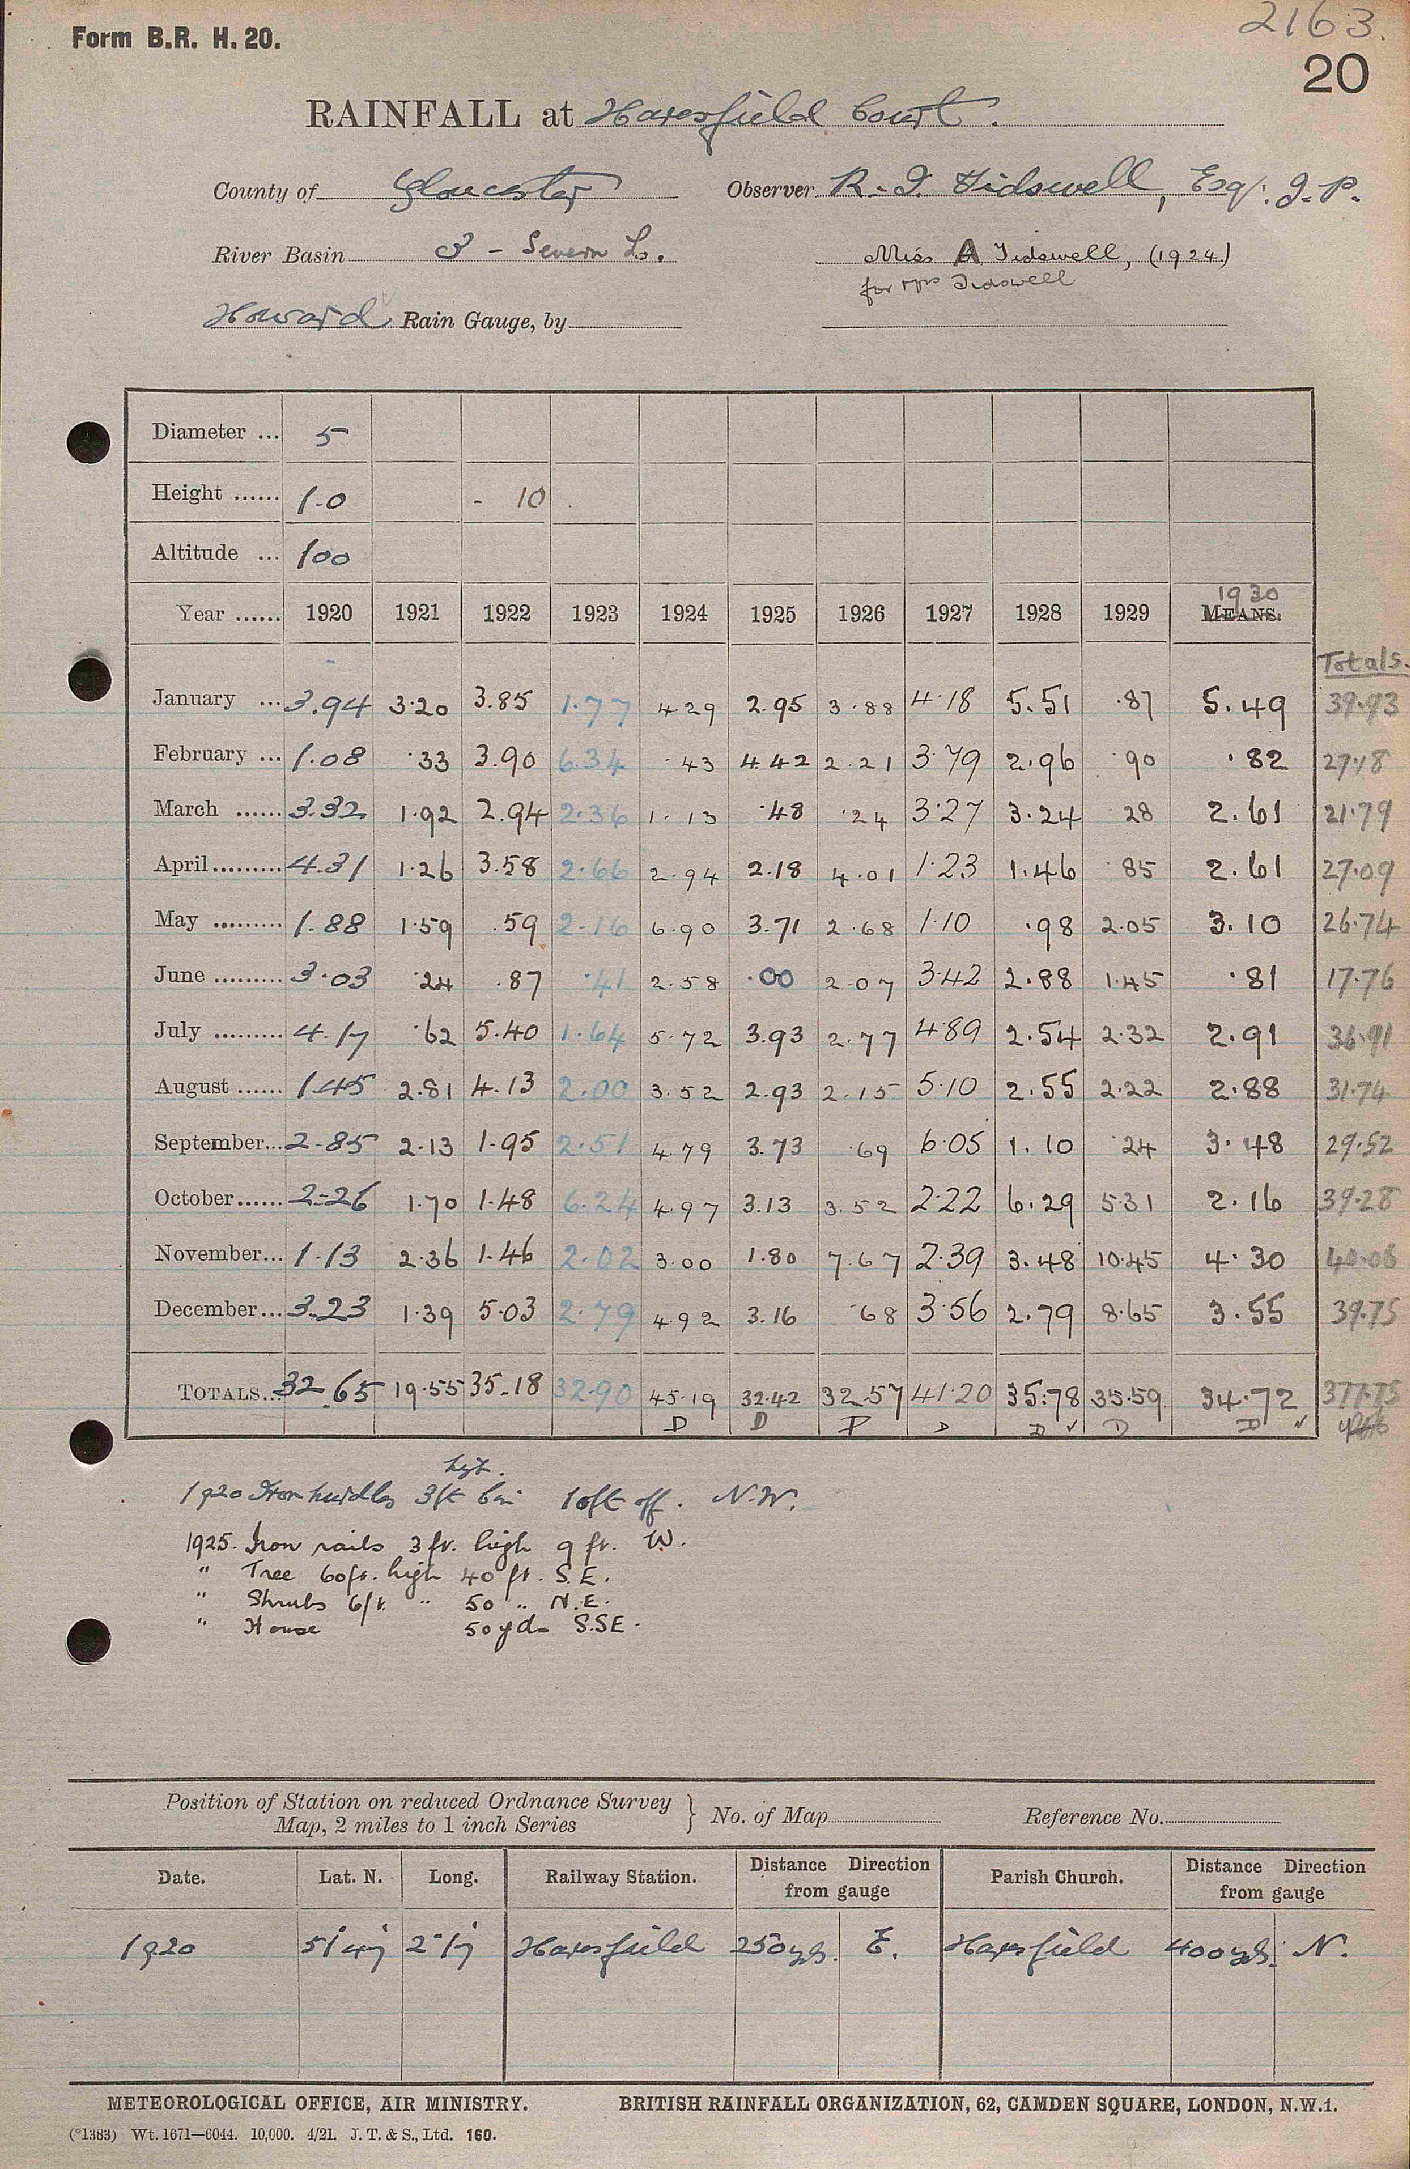 2163.
Form B.R. H. 20.
20
RAINFALL at Haresfield Court.
County of Gloucester Observer R. I. Tidswell, Esq., J.P.
River Basin 3 - Severn L. Miss A Tidswell, (1924)
for Mrs Tidswell
Howard Rain Gauge, by
Diameter ... 5
Height ...... 1.0 - 10
Altitude ... 100
1930
Year ...... 1920 1921 1922 1923 1924 1925 1926 1927 1928 1929 MEANS.
Totals.
January ... 3.94 3.20 3.85 1.77 4.29 2.95 3.88 4.18 5.51 .87 5.49 39.93
February ... 1.08 .33 3.90 6.34 .43 4.42 2.21 3.79 2.96 .90 .82 27.18
March ...... 3.32 1.92 2.94 2.36 1.13 .48 .24 3.27 3.24 .28 2.61 21.79
April ......... 4.31 1.26 3.58 2.66 2.94 2.18 4.01 1.23 1.46 .85 2.61 27.09
May ......... 1.88 1.59 .59 2.16 6.90 3.71 2.68 1.10 .98 2.05 3.10 26.74
June ......... 3.03 .24 .87 .41 2.58 .00 2.07 3.42 2.88 1.45 .81 17.76
July ......... 4.17 .62 5.40 1.64 5.72 3.93 2.77 4.89 2.54 2.32 2.91 36.91
August ...... 1.45 2.81 4.13 2.00 3.52 2.93 2.15 5.10 2.55 2.22 2.88 31.74
September... 2.85 2.13 1.95 2.51 4.79 3.73 .69 6.05 1.10 .24 3.48 29.52
October ...... 2.26 1.70 1.48 6.24 4.97 3.13 3.52 2.22 6.29 5.31 2.16 39.28
November... 1.13 2.36 1.46 2.02 3.00 1.80 7.67 2.39 3.48 10.45 4.30 40.06
December ... 3.23 1.39 5.03 2.79 4.92 3.16 .68 3.56 2.79 8.65 3.55 39.75
TOTALS... 32.65 19.55 35.18 32.90 45.19 32.42 32.57 41.20 35.78 35.59 34.72 377.75
D D D D D ✓ D D ✓
hgh.
1920 Iron hurdles 3ft 6in 10ft off. N.W.
1925. Iron rails 3 ft. high 9 ft. W.
" Tree 60ft. high 40 ft. S.E.
" Shrubs 6ft. " 50 " N.E.
" House 50 yds S.SE.
Position of Station on reduced Ordnance Survey Map, 2 miles to 1 inch Series } No. of Map Reference No.
Date. Lat. N. Long. Railway Station. Distance Direction from gauge Parish Church. Distance Direction from gauge
1920 51°47' 2°17' Haresfield 250 yds. E. Haresfield 400 yds. N.
METEOROLOGICAL OFFICE, AIR MINISTRY. BRITISH RAINFALL ORGANIZATION, 62, CAMDEN SQUARE, LONDON, N.W.1.
(*1383) Wt. 1671—6044. 10,000. 4/21. J. T. & S., Ltd. 160.